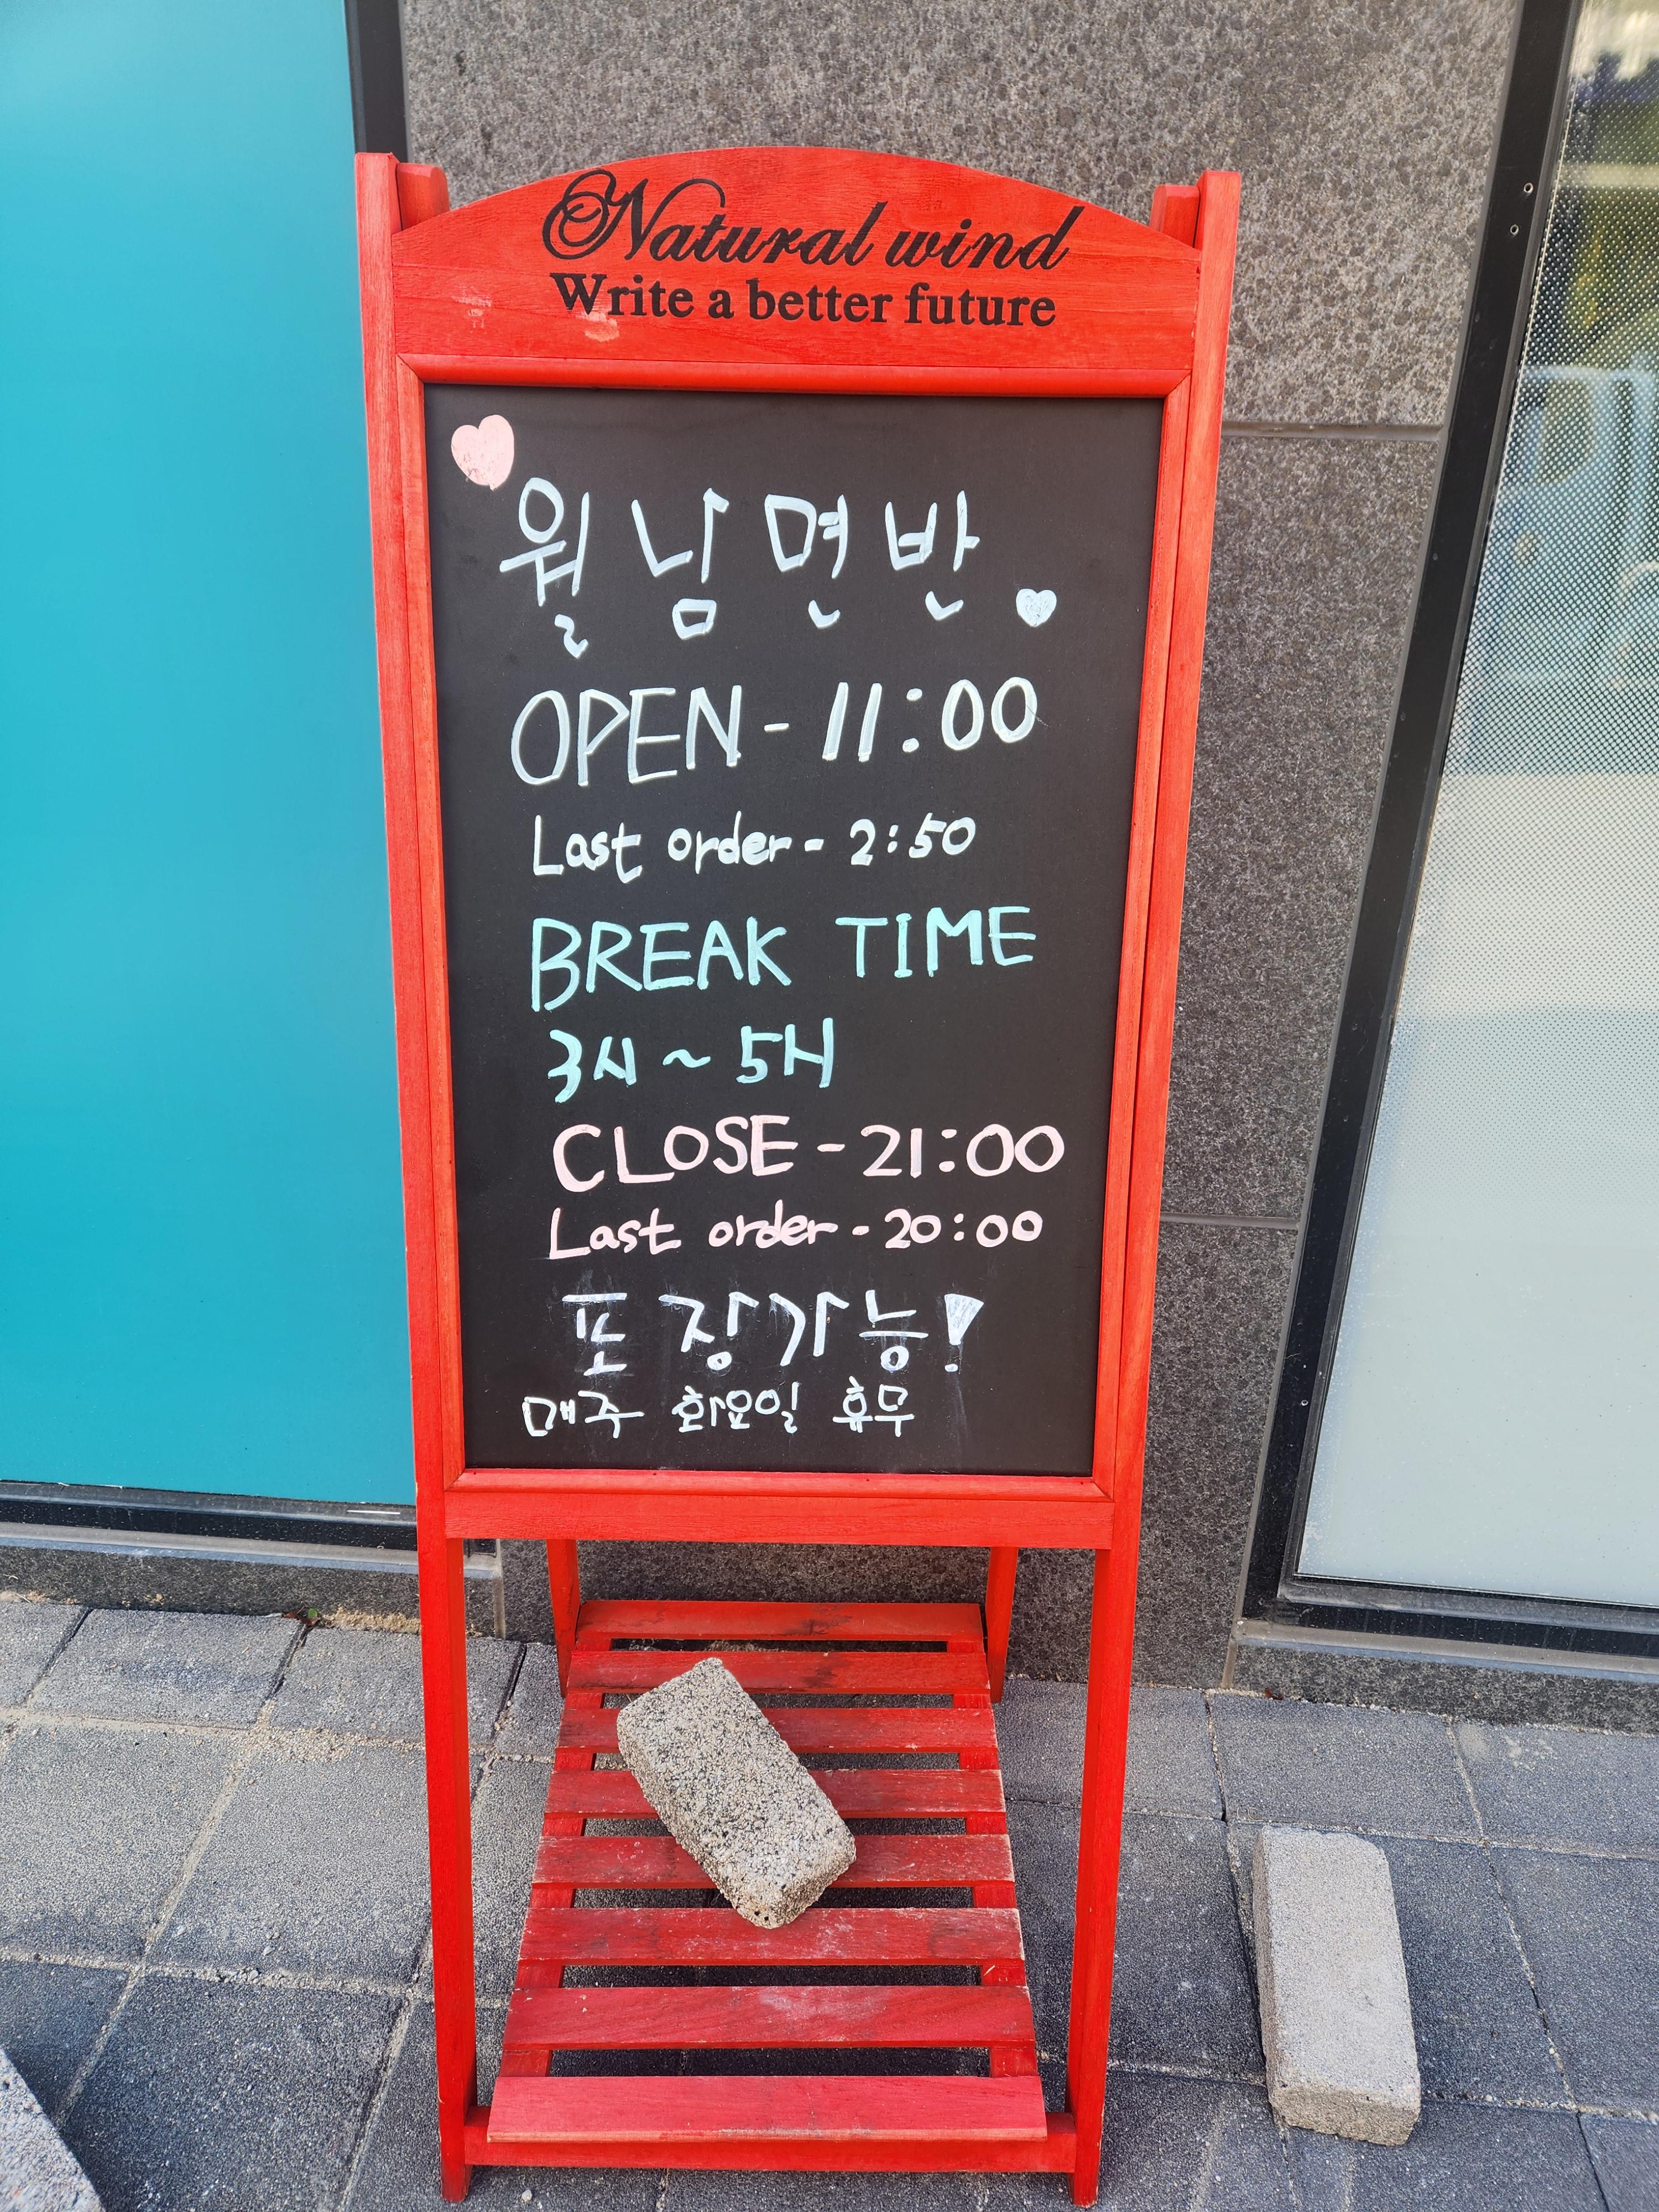 Natural wind
Write a better future
월남면반
OPEN - 11:00
Last order - 2:50
BREAK TIME
3시 ~ 5시
CLOSE - 21:00
Last order - 20:00
포장가능!
매주 화요일 휴무